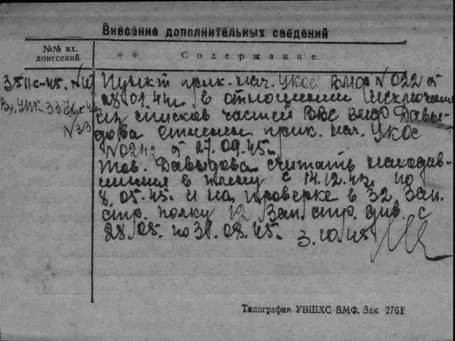 Внесение дополнительных сведений
№№ вх.
донесений
Содержание
Пункт прик. нач. УКОС ВМФ №022 от
28.01.44 в отношении исключения
из списков частей ВВС ВМФ Давы-
дова отменен прик. нач. УКОС
№0242 от 27.09.45.
Тов. Давыдова считать находив-
шимся в плену с 14.12.43 по
8.05.45 и на проверке в 32 зап.
стр. полку 12 зап. стр. див. с
28/05. по 31.08.45.
3.10.45
Типография УВШХС ВМФ. Зак. 2761